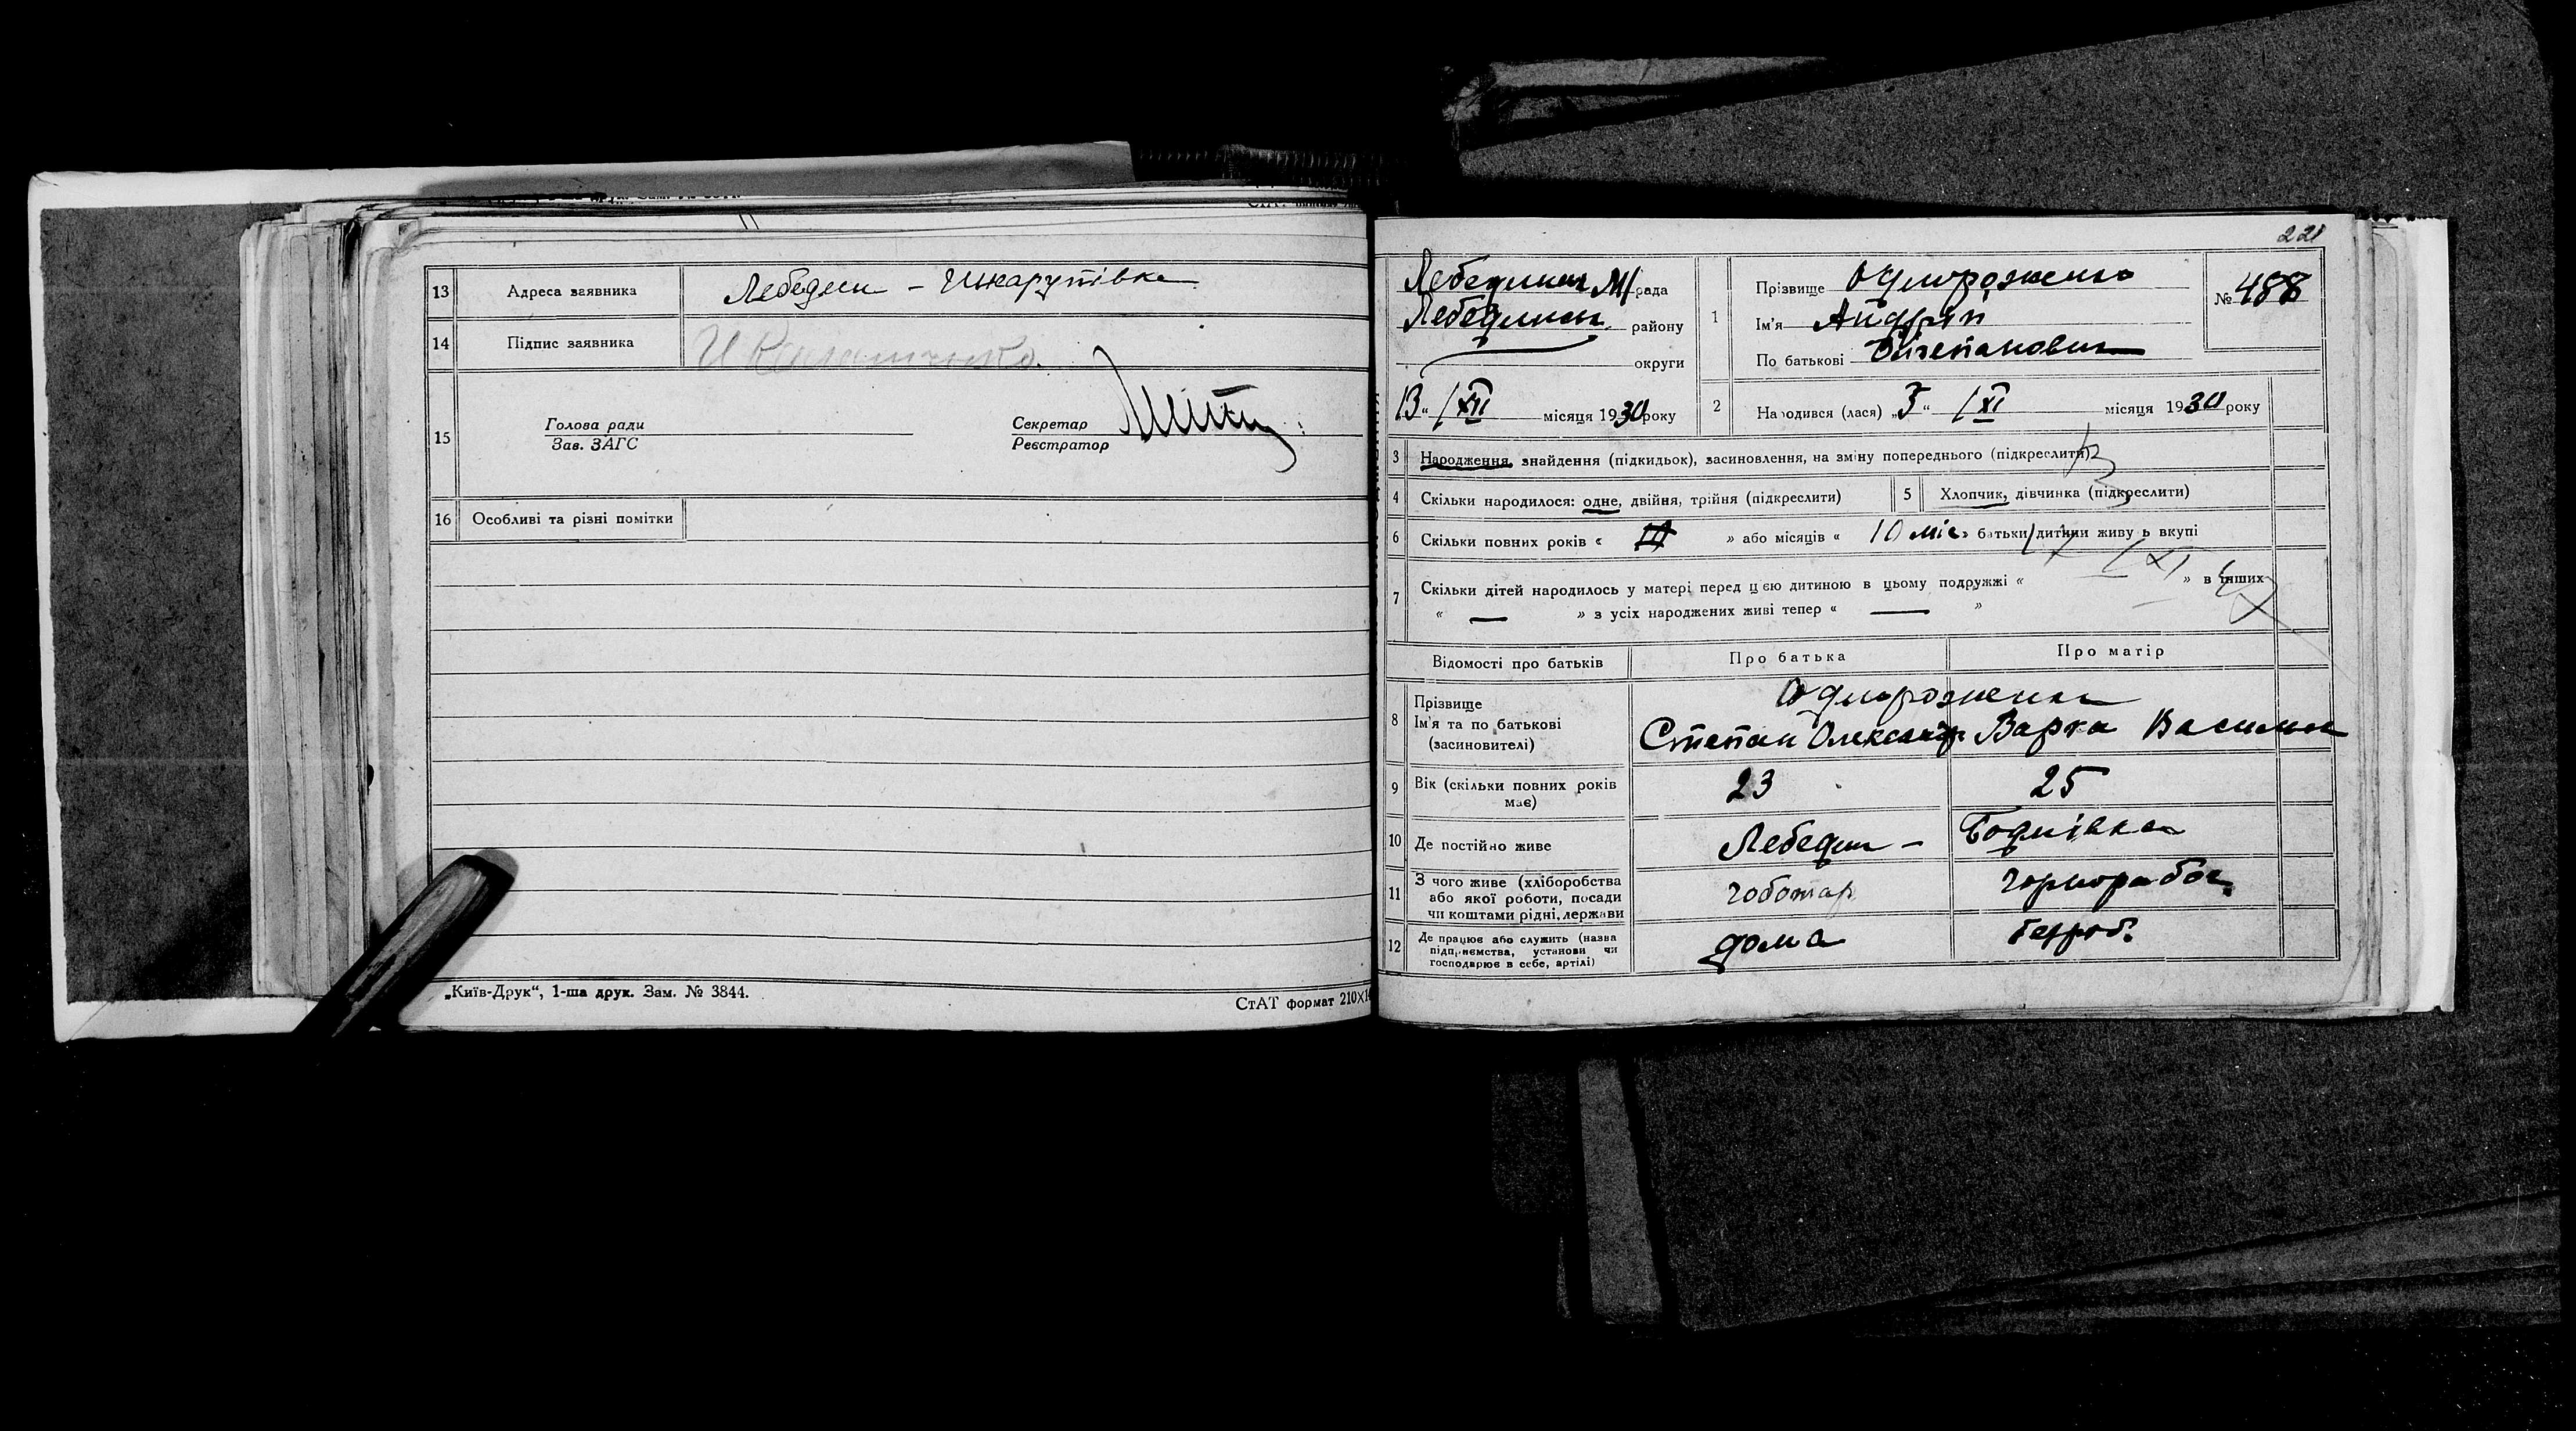 13 Адреса заявника Лебедин - Шкарупівка
14 Підпис заявника И
15 Голова ради Секретар
Зав. ЗАГС Реєстратор
16 Особливі та різні помітки
„Київ-Друк“, 1-ша друк. Зам. № 3844.
СтАТ формат 210×1
221
Лебединськ М/рада
Лебединськ району
округи
13 „ /XII місяця 1930 року
1 Прізвище Одмороженко
Ім'я Андрій
По батькові Степанович
№ 488
2 Народився (лася) „ 3 “ /XI місяця 1930 року
3 Народження, знайдення (підкидьок), засиновлення, на зміну попереднього (підкреслити)
4 Скільки народилося: одне, двійня, трійня (підкреслити) 5 Хлопчик, дівчинка (підкреслити)
6 Скільки повних років « » або місяців « 10 міс » батьки дитини живуть вкупі
7 Скільки дітей народилось у матері перед цією дитиною в цьому подружжі « » в інших
« — » з усіх народжених живі тепер « — »
Відомості про батьків Про батька Про матір
8 Прізвище Одмороженки
Ім'я та по батькові Степан Олександр Варка Василів
(засиновителі)
9 Вік (скільки повних років має) 23 25
10 Де постійно живе Лебедин - Боднівка
11 З чого живе (хліборобства чоботар чорнороб
або якої роботи, посади
чи коштами рідні, держави
12 Де працює або служить (назва дома безроб.
підприємства, установи чи
господарює в себе, артілі)